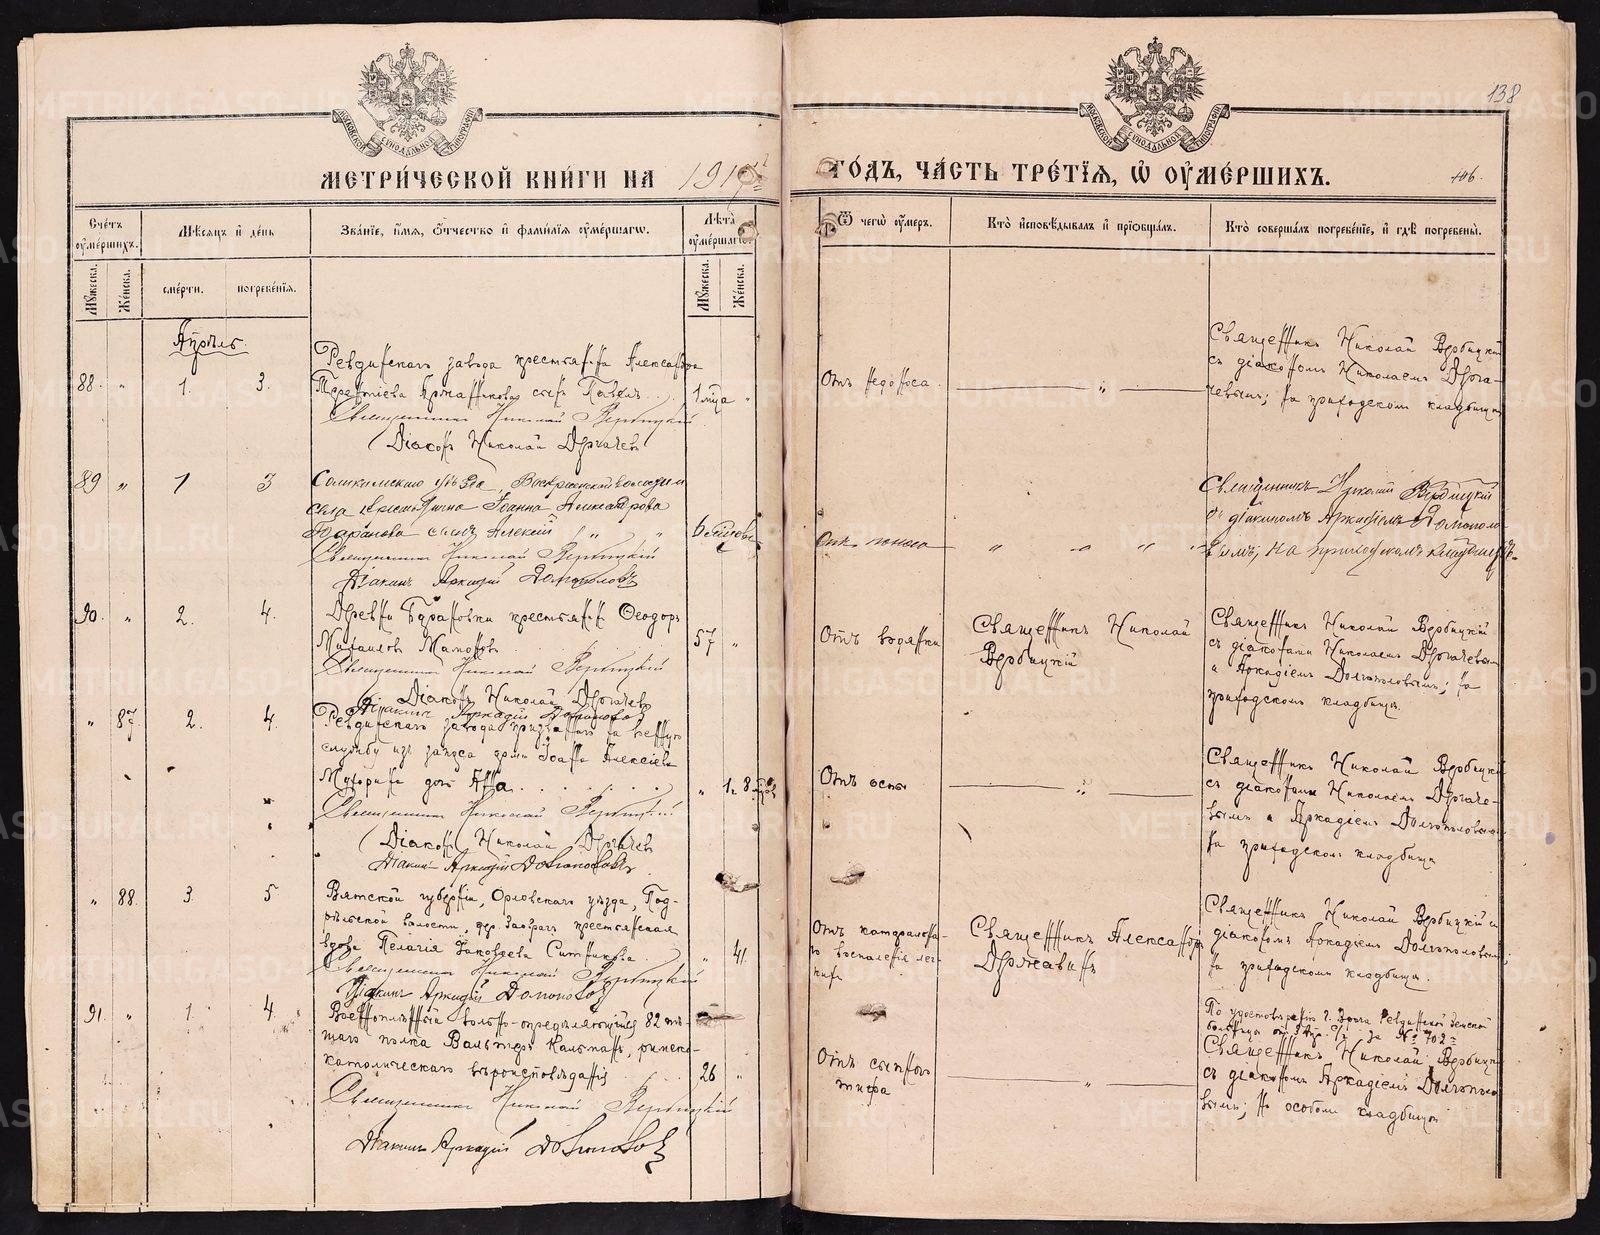 138
МОСКОВСКОЙ СѴНОДАЛЬНОЙ ТИПОГРАФІИ
МОСКОВСКОЙ СѴНОДАЛЬНОЙ ТИПОГРАФІИ
МЕТРИ́ЧЕСКОЙ КНИ́ГИ НА 1917
ГО́ДЪ, ЧА́СТЬ ТРЕ́ТІЯ, Ѡ҆ ОУ҆МЕ́РШИХЪ.
106.
Сче́тъ оу҆ме́ршихъ.
Мꙋ́жеска.
Же́нска.
Мѣ́сяцъ и҆ де́нь
сме́рти.
погребе́нїя.
Зва́нїе, и҆́мя, ѻ҆́тчество и҆ фами́лїя оу҆ме́ршагѡ.
Лѣ́та оу҆ме́ршагѡ.
Мꙋ́жеска.
Же́нска.
Ѿ чегѡ̀ оу҆́меръ.
Кто̀ и҆сповѣ́дывалъ и҆ прїѡбща́лъ.
Кто̀ соверша́лъ погребе́нїе, и҆ гдѣ̀ погребены̀.
Апрѣль
88. " 1. 3.
Ревдинскаго завода крестьянина Александра
Терентіева сынъ Павелъ
1 мца "
Священникъ Николай Вербицкій
Діаконъ Николай Дерьгачевъ
Отъ недоноса.
Священникъ Николай Вербицкій
съ діакономъ Николаемъ Дерга-
чевымъ; на приходскомъ кладбищѣ
89 " 1 3
уѣзда, Воскресенской волости
села крестьянина Іоанна Александрова
Баранова сынъ Алексій " "
6
Священникъ Николай Вербицкій
Діаконъ Аркадій Долгополовъ
Отъ поноса
Священникъ Николай Вербицкій
съ діакономъ Аркадіемъ Долгополо-
вымъ; на приходскомъ кладбищѣ.
90. " 2. 4.
Дер́евни Барановки крестьянинъ Ѳеодоръ
Михаиловъ Мамоновъ
57 "
Священникъ Николай Вербицкій
Діаконъ Николай Дергачевъ
Діаконъ Аркадій Долгополовъ
Отъ водянки
Священникъ Николай
Вербицкій
Священникъ Николай Вербицкій
съ діаконами Николаемъ Дергачевымъ
и Аркадіемъ Долгополовымъ; на
приходскомъ кладбищѣ.
" 87 2. 4.
Ревдинскаго завода на военную
службу изъ запаса арміи Іоанна Алексіева
дочь Анна
" 1 г. 8
Священникъ Николай Вербицкій
Діаконъ Николай Дергачевъ
Діаконъ Аркадій Долгополовъ
Отъ оспы
Священникъ Николай Вербицкій
съ діаконами Николаемъ Дергаче-
вымъ и Аркадіемъ Долгополовымъ
на приходскомъ кладбищѣ
" 88. 3. 5
Вятской губерніи, Орловскаго уѣзда, Под-
рѣльской волости, дер. крестьянская
вдова Пелагія Іаковлева Ситникова.
" 41.
Священникъ Николай Вербицкій
Діаконъ Аркадій Долгополовъ
Отъ катарально-
го воспаленія лег-
кихъ
Священникъ Александръ
Державинъ
Священникъ Николай Вербицкій съ
діакономъ Аркадіемъ Долгополовымъ;
на приходскомъ кладбищѣ.
91. " 1. 4.
Военноплѣнный вольно-опредѣляющійся 82 пѣ-
шаго полка Вальтеръ Кальманъ, римско-
католическаго вѣроисповѣданія
26 "
Священникъ Николай Вербицкій
Діаконъ Аркадій Долгополовъ
Отъ сыпнаго
тифа
По удостовѣренію г. Врача Ревдинской Земской
больницы за № 702
Священникъ Николай Вербицкій
съ діакономъ Аркадіемъ Долгополо-
вымъ; на особомъ кладбищѣ
METRIKI.GASO-URAL.RU